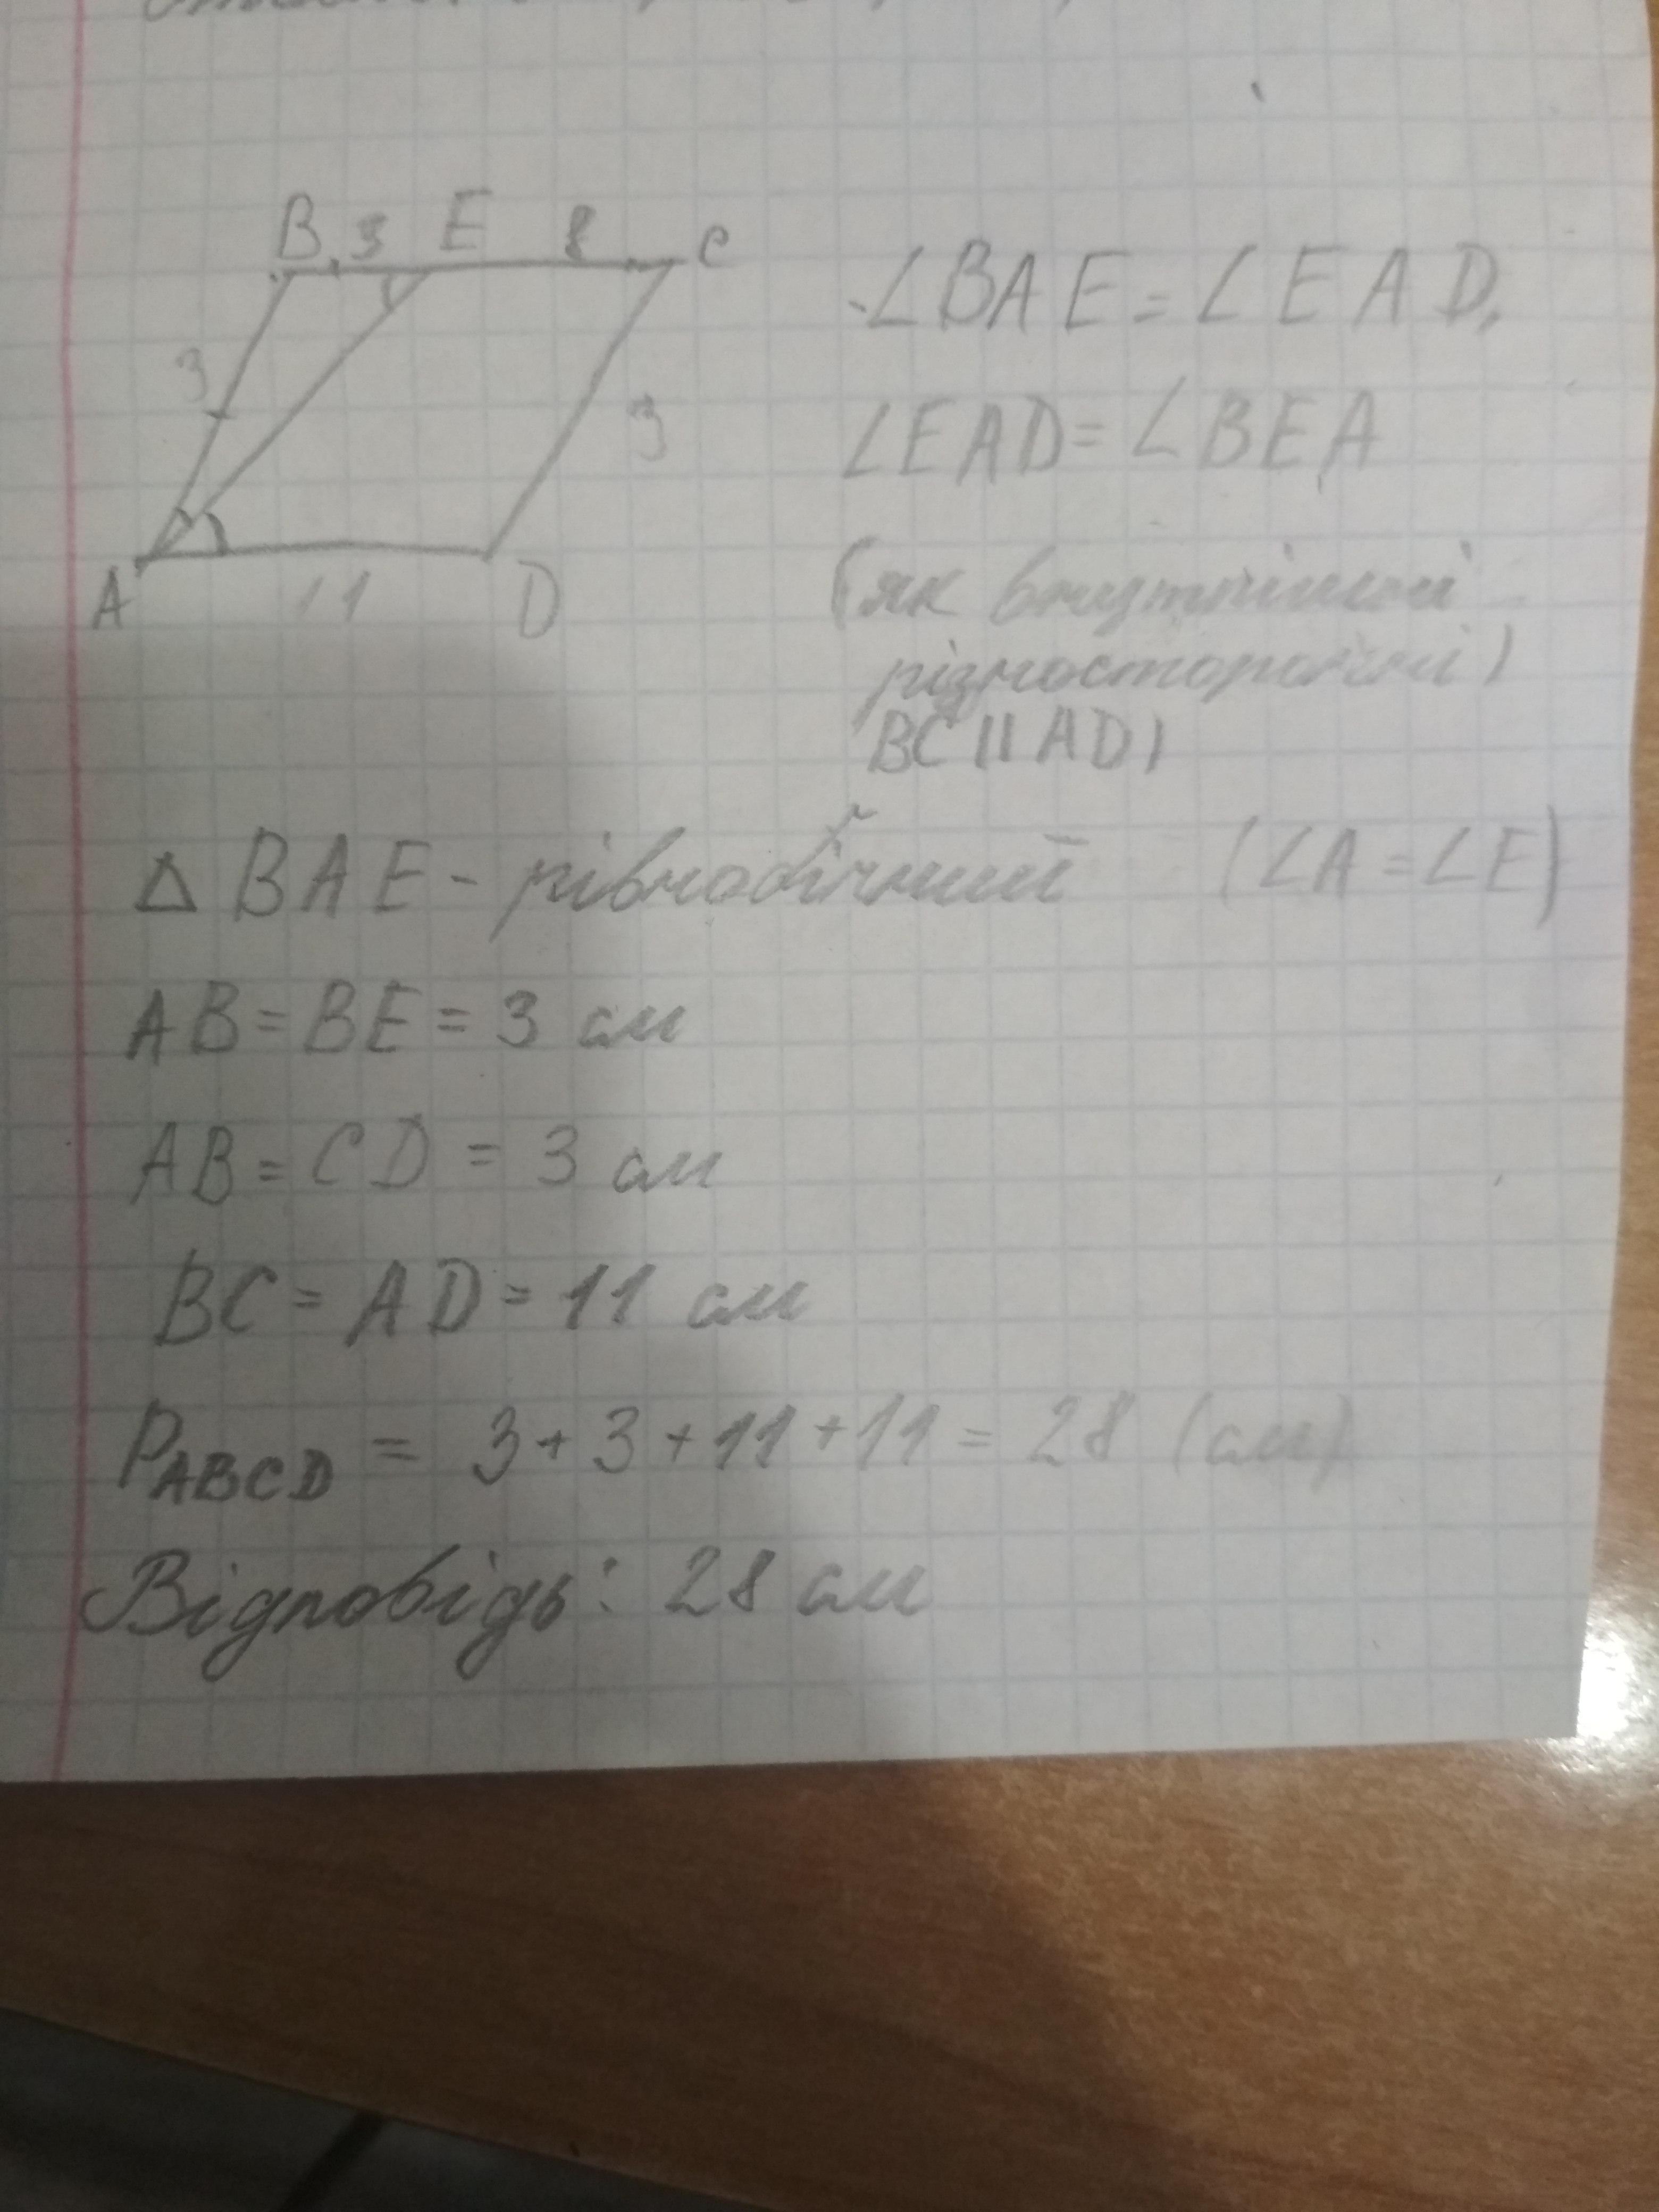 B 3 E 8 C
3
3
A 11 D
∠BAE = ∠EAD,
∠EAD = ∠BEA
(як внутрішні
різносторонні)
BC || AD)
△ BAE - рівнобічний (∠A = ∠E)
AB = BE = 3 см
AB = CD = 3 см
BC = AD = 11 см
PABCD = 3 + 3 + 11 + 11 = 28 (см)
Відповідь: 28 см